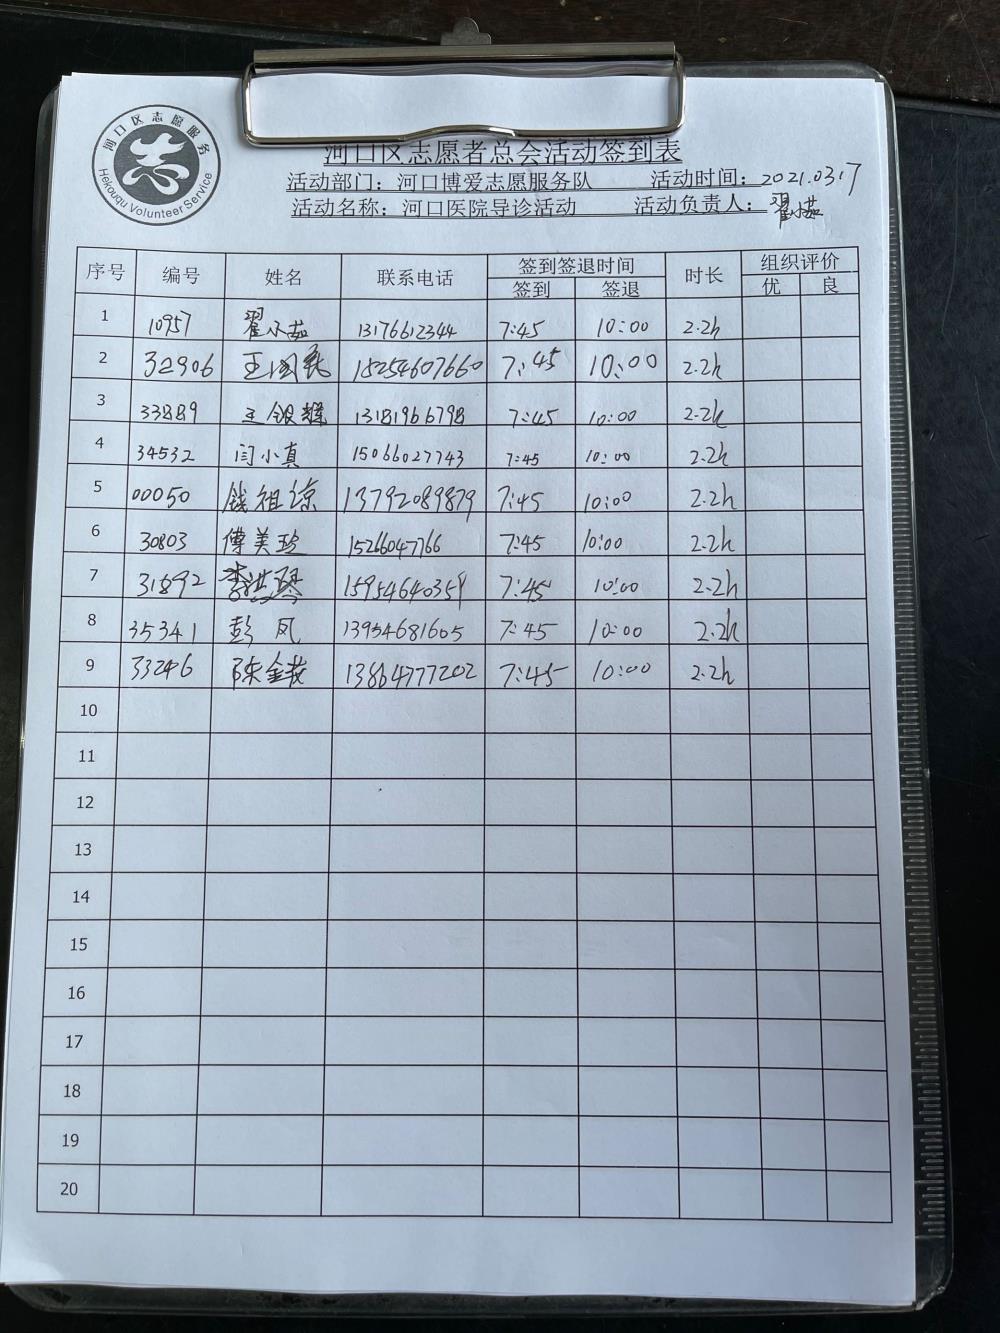 河口区志愿服务
Hekouqu Volunteer Service
河口区志愿者总会活动签到表
活动部门：河口博爱志愿服务队 活动时间：2021.03.17
活动名称：河口医院导诊活动 活动负责人：翟小茹
序号 编号 姓名 联系电话 签到签退时间 时长 组织评价
签到 签退 优 良
1 10957 翟小茹 13176612344 7:45 10:00 2.2h
2 32906 王国 15254607660 7:45 10:00 2.2h
3 33889 王银 13181966798 7:45 10:00 2.2h
4 34532 闫小真 15066027743 7:45 10:00 2.2h
5 00050 钱祖谅 13792089879 7:45 10:00 2.2h
6 30803 傅美玲 15266047766 7:45 10:00 2.2h
7 31892 李洪琴 15954640359 7:45 10:00 2.2h
8 35341 彭凤 13954681605 7:45 10:00 2.2h
9 33246 陈金 13864777202 7:45 10:00 2.2h
10
11
12
13
14
15
16
17
18
19
20